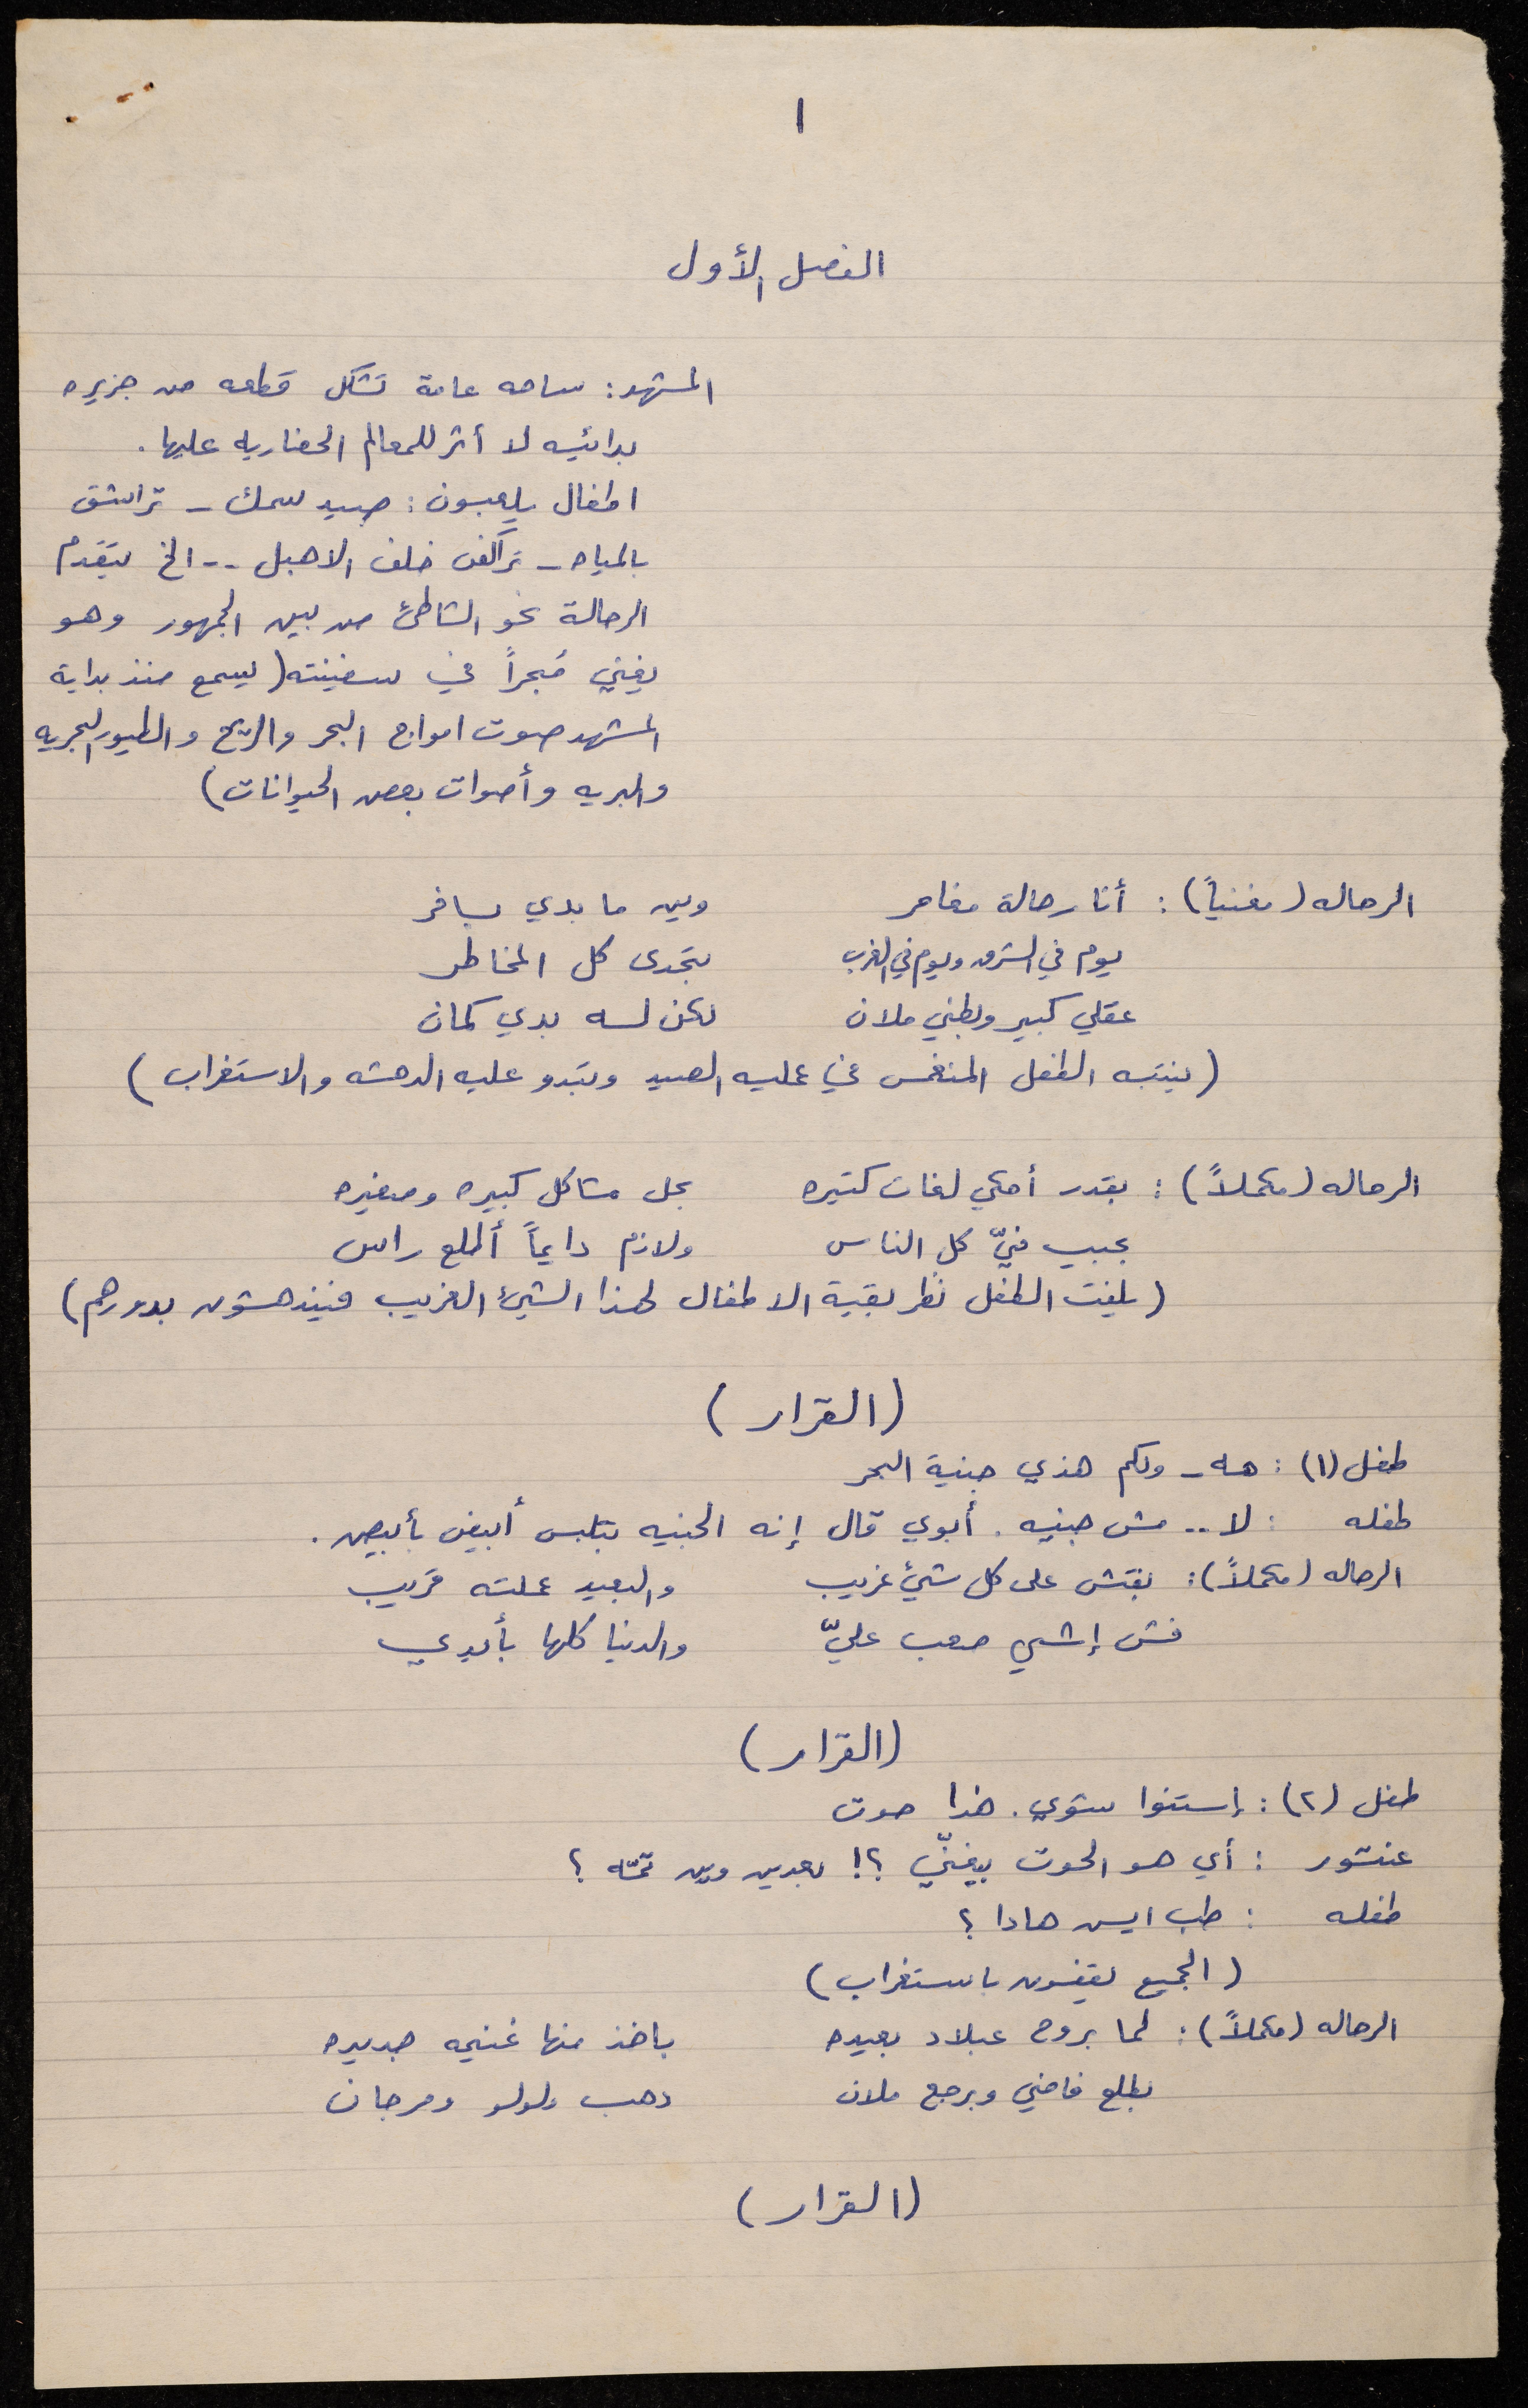 ١
الفصل الأول
المشهد: ساحه عامة تشكل قطعه من جزيره
بدائيه لا أثر للمعالم الحضاريه عليها.
اطفال يلعبون: صيد سمك - تراشق
بالمياه - تراكض خلف الاهبل .. الخ يتقدم
الرحالة نحو الشاطئ من بين الجمهور وهو
يغني مُبحراً في سفينته (يسمع منذ بداية
المشهد صوت امواج البحر والريح والطيور البحريه
والبريه وأصوات بعض الحيوانات)
الرحاله (مغنياً): أنا رحالة مغامر وين ما بدي بسافر
يوم في الشرق ويوم في الغرب بتحدى كل المخاطر
عقلي كبير وبطني ملان لكن لسه بدي كمان
(ينتبه الطفل المنغمس في عمليه الصيد وتبدو عليه الدهشه والاستغراب)
الرحاله (مكملاً): بقدر أحكي لغات كتيره بحل مشاكل كبيره وصغيره
بحبب فيّ كل الناس ولازم دايماً أطلع راس
(يلفت الطفل نظر بقية الاطفال لهذا الشيئ الغريب فيندهشون بدورهم)
(القرار)
طفل (١): هه - ولكم هذي جنية البحر
طفله : لا .. مش جنيه. أبوي قال إنه الجنيه بتلبس أبيض بأبيض.
الرحاله (مكملاً): بفتش على كل شيئ غريب والبعيد عملته قريب
فش إشي صعب عليّ والدنيا كلها بأيدي
(القرار)
طفل (٢): إستنوا شوي. هذا حوت
عنتور : أي هو الحوت بيغنّي ؟! بعدين وين تمّه ؟
طفله : طب ايش هادا ؟
(الجميع يقفون باستغراب)
الرحاله (مكملاً): لما بروح عبلاد بعيده باخذ منها غنيمه جديده
بطلع فاضي وبرجع ملان دهب ولولو ومرجان
(القرار)